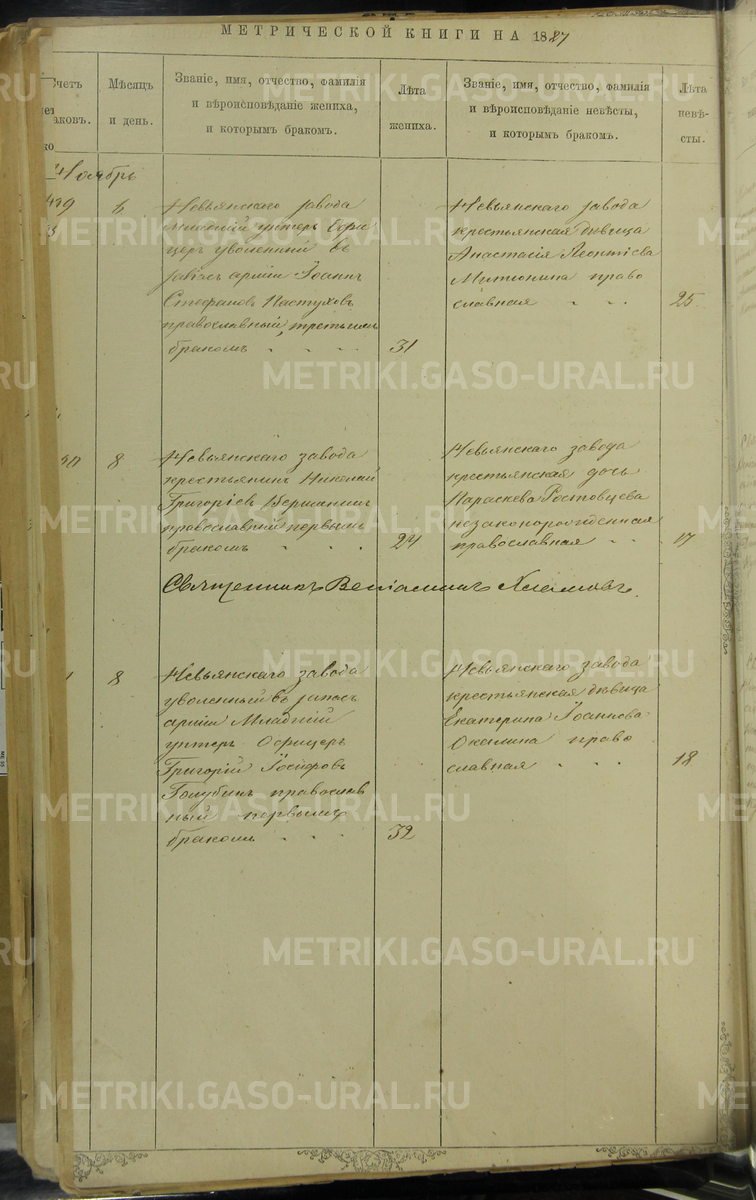 МЕТРИЧЕСКОЙ КНИГИ НА 1887
Счетъ
Мѣсяцъ и день.
Званіе, имя, отчество, фамилія
и вѣроисповѣданіе жениха,
и которымъ бракомъ.
Лѣта
жениха.
Званіе, имя, отчество, фамилія
и вѣроисповѣданіе невѣсты,
и которымъ бракомъ.
Лѣта
невѣ-
сты.
Ноябрь
Невьянскаго завода
унтеръ Офи
церъ уволенный въ
арміи Іоаннъ
Стефановъ Пастуховъ
православный, третьимъ
бракомъ
31
Невьянскаго завода
крестьянская дѣвица
Анастасія Леонтіева
Митюнина право
славная
25
8
Невьянскаго завода
крестьянинъ Николай
Григоріевъ
православный первымъ
бракомъ
24
Невьянскаго завода
крестьянская дочь
Параскева Ростовцева
незаконорожденная
православная
17
Священникъ Веніаминъ
8
Невьянскаго завода
уволенный въ запасъ
арміи Младшій
унтеръ Офицеръ
Григорій Іосифовъ
Голубинъ православ
ный первымъ
бракомъ
32
Невьянскаго завода
крестьянская дѣвица
Екатерина Іоаннова
право
славная
18
METRIKI.GASO-URAL.RU